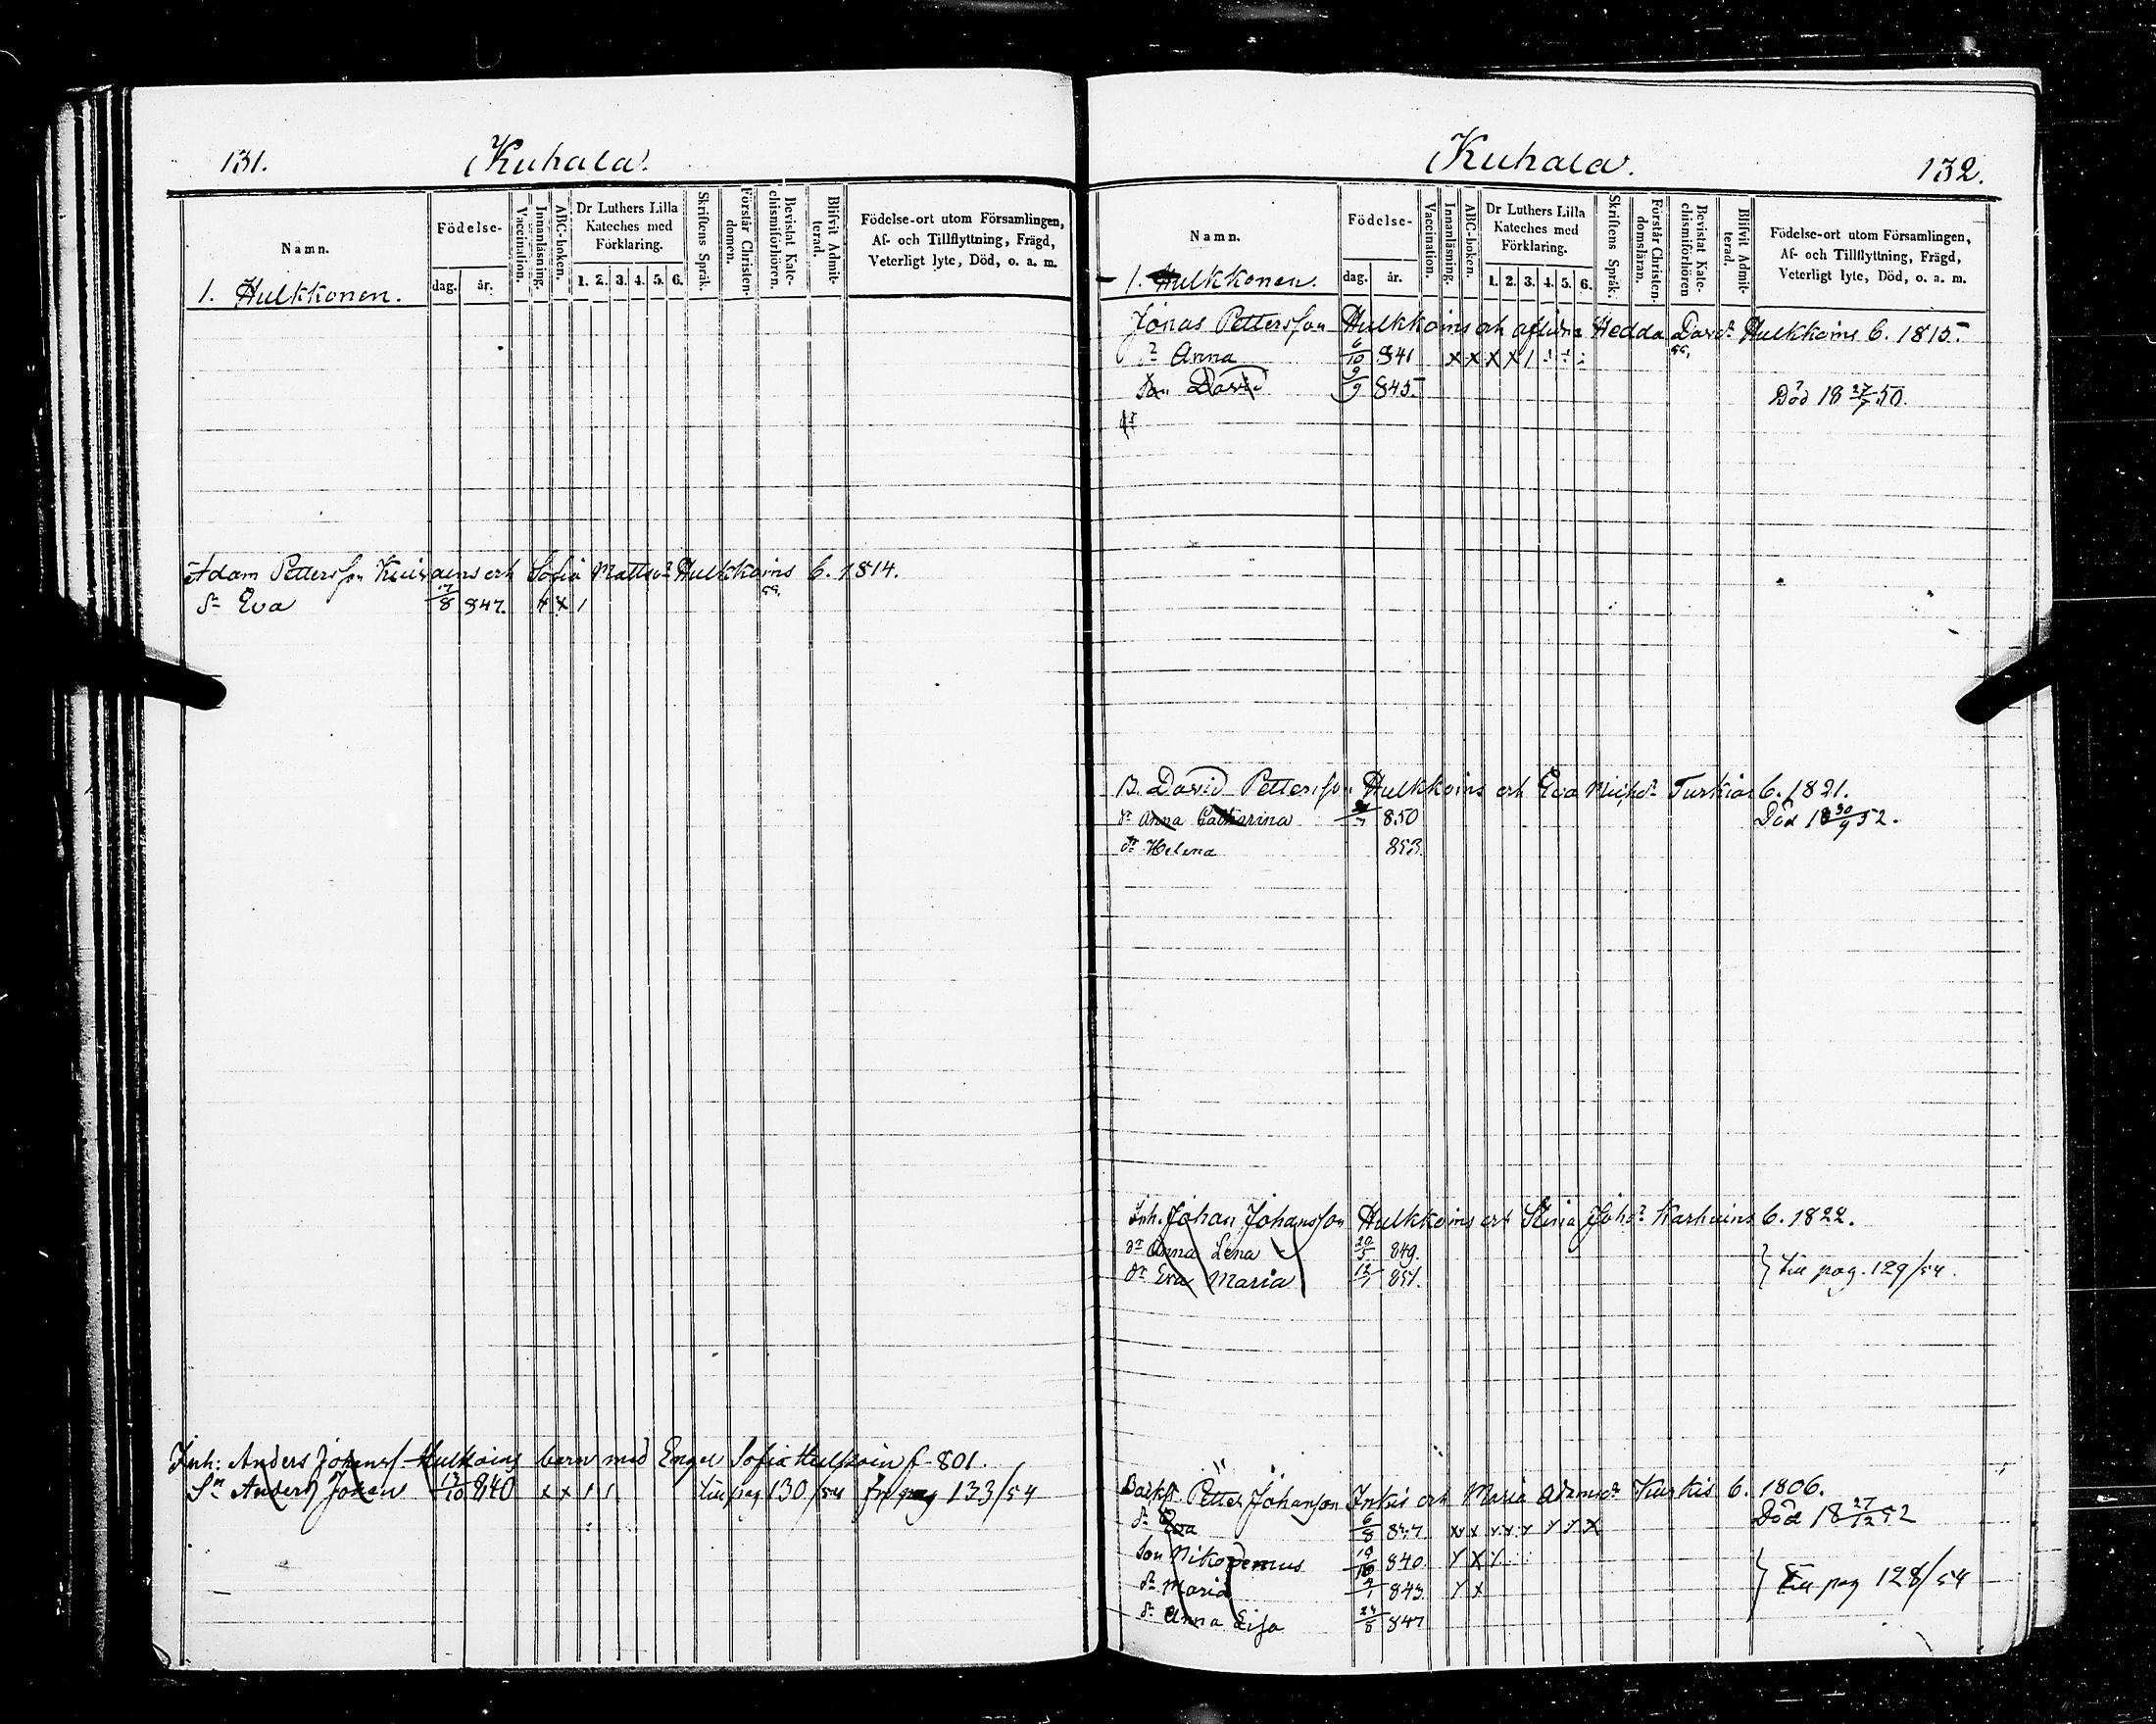 131. Kuhala.
Namn.
Födelse-
dag. år.
Vaccination.
Innanläsning.
ABC-boken.
Dr Luthers Lilla Kateches med Förklaring.
1. 2. 3. 4. 5. 6.
Skriftens Språk.
Förstår Christendomen.
Bevistat Katechismiförhören.
Blifvit Admitterad.
Födelse-ort utom Församlingen, Af- och Tillflyttning, Frägd, Veterligt lyte, Död, o. a. m.
1. Hulkkonen.
Adam Pettersson och Sofia Hulkkoins b. 1814.
dr Eva 8 847. x x 1
Inh: Anders Johans. Hulkoins barn med Sofia f. 801.
Sn Anders Johan 13/10 840 x x 1 1 till pag 130/54 fr pag 133/54
Kuhala. 132.
Namn.
Födelse-
dag. år.
Vaccination.
Innanläsning.
ABC-boken.
Dr Luthers Lilla Kateches med Förklaring.
1. 2. 3. 4. 5. 6.
Skriftens Språk.
Förstår Christendomsläran.
Bevistat Katechismiförhören
Blifvit Admitterad.
Födelse-ort utom Församlingen, Af- och Tillflyttning, Frägd, Veterligt lyte, Död, o. a. m.
1. Hulkkonen.
Jonas Pettersson Hulkkoins och aflidna Hedda Davdr Hulkkoins b. 1815.
dr Anna 6/10 841 x x x x 1
Son David 9/9 845. Död 18 27/7 50.
dr
B. David Pettersson Hulkkoins och Eva Michdr Turkiar b. 1821.
dr Anna Catharina 850 Död 18 30/9 52.
dr Helena 853.
Inh. Johan Johansson Hulkkoins och Stina Johdr Karhuins b. 1822.
dr Anna Lena 20/5 849.
dr Eva Maria 12/7 851. } till pag. 129/54.
Petter Johansson Inkis och Maria Adamsdr b. 1806.
dr Eva 6/8 837 x x x x x x x x Död 18 27/12 52
Son Nikodemus 840. x x x
dr Maria 843. x x } till pag 128/54
dr Anna Lisa 24/8 847